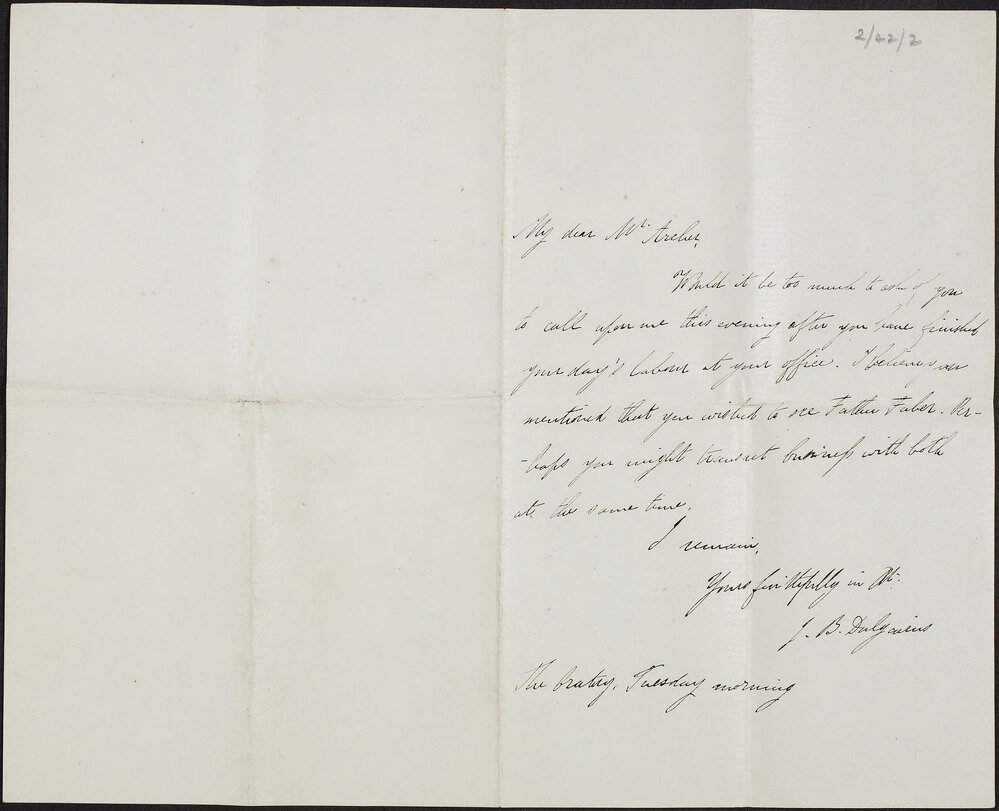 2/42/2
My dear Mr. Archer,
Would it be too much to ask of you
to call upon me this evening after you have finished
your day's labour at your office. I believe you
mentioned that you wished to see Father Faber. Per-
-haps you might transact business with both
at the same time.
I remain,
Yours faithfully in Xt.
J. B. Dalgairns
The Oratory, Tuesday morning